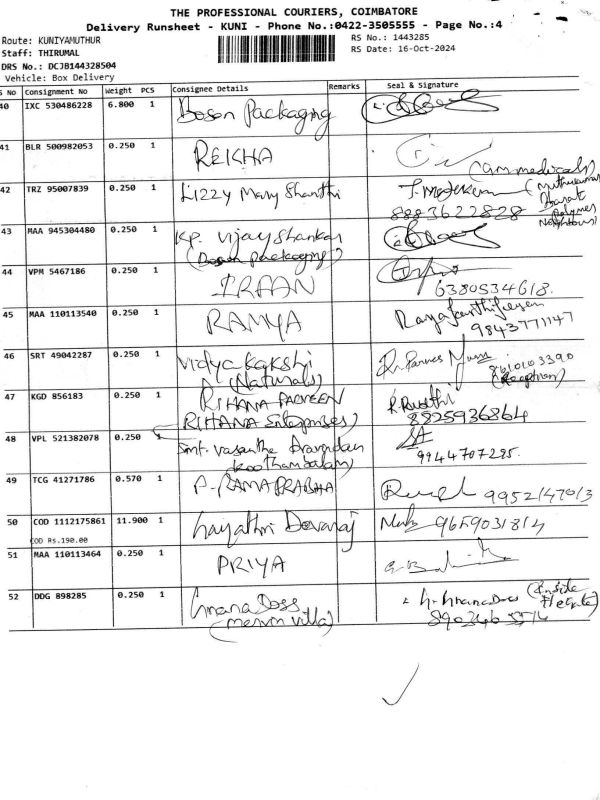 THE PROFESSIONAL COURIERS, COIMBATORE
Delivery Runsheet - KUNI - Phone No.:0422-3505555 - Page No.:4
Route: KUNIYAMUTHUR
RS No.: 1443285
Staff: THIRUMAL
RS Date: 16-Oct-2024
DRS No.: DCJB144328504
Vehicle: Box Delivery
S No Consignment No Weight PCS Consignee Details Remarks Seal & Signature
40 IXC 530486228 6.800 1 Boson Packaging
41 BLR 500982053 0.250 1 REKHA
42 TRZ 95007839 0.250 1 Lizzy Mary Shanthi 8883622828
43 MAA 945304480 0.250 1 Kp. Vijay Shankar
(Boson packaging)
44 VPM 5467186 0.250 1 IRFAN 6380534618.
45 MAA 110113540 0.250 1 RAMYA 9843771147
46 SRT 49042287 0.250 1 Vidya 8610103390
(Naturals) (Reception)
47 KGD 856183 0.250 1 RIHANA PARVEEN
RIHANA Enterprises) 8825936864
48 VPL 521382078 0.250 1 Smt. Vasantha Aravindan
9944707295.
49 TCG 41271786 0.570 1 P. RAMA PRABHA 9952147013
50 COD 1112175861 11.900 1 Gayathri Devaraj 9659031814
COD Rs.190.00
51 MAA 110113464 0.250 1 PRIYA
52 DDG 898285 0.250 1 Gnana Doss G. Gnana Doss (Inside
(mervin villa)